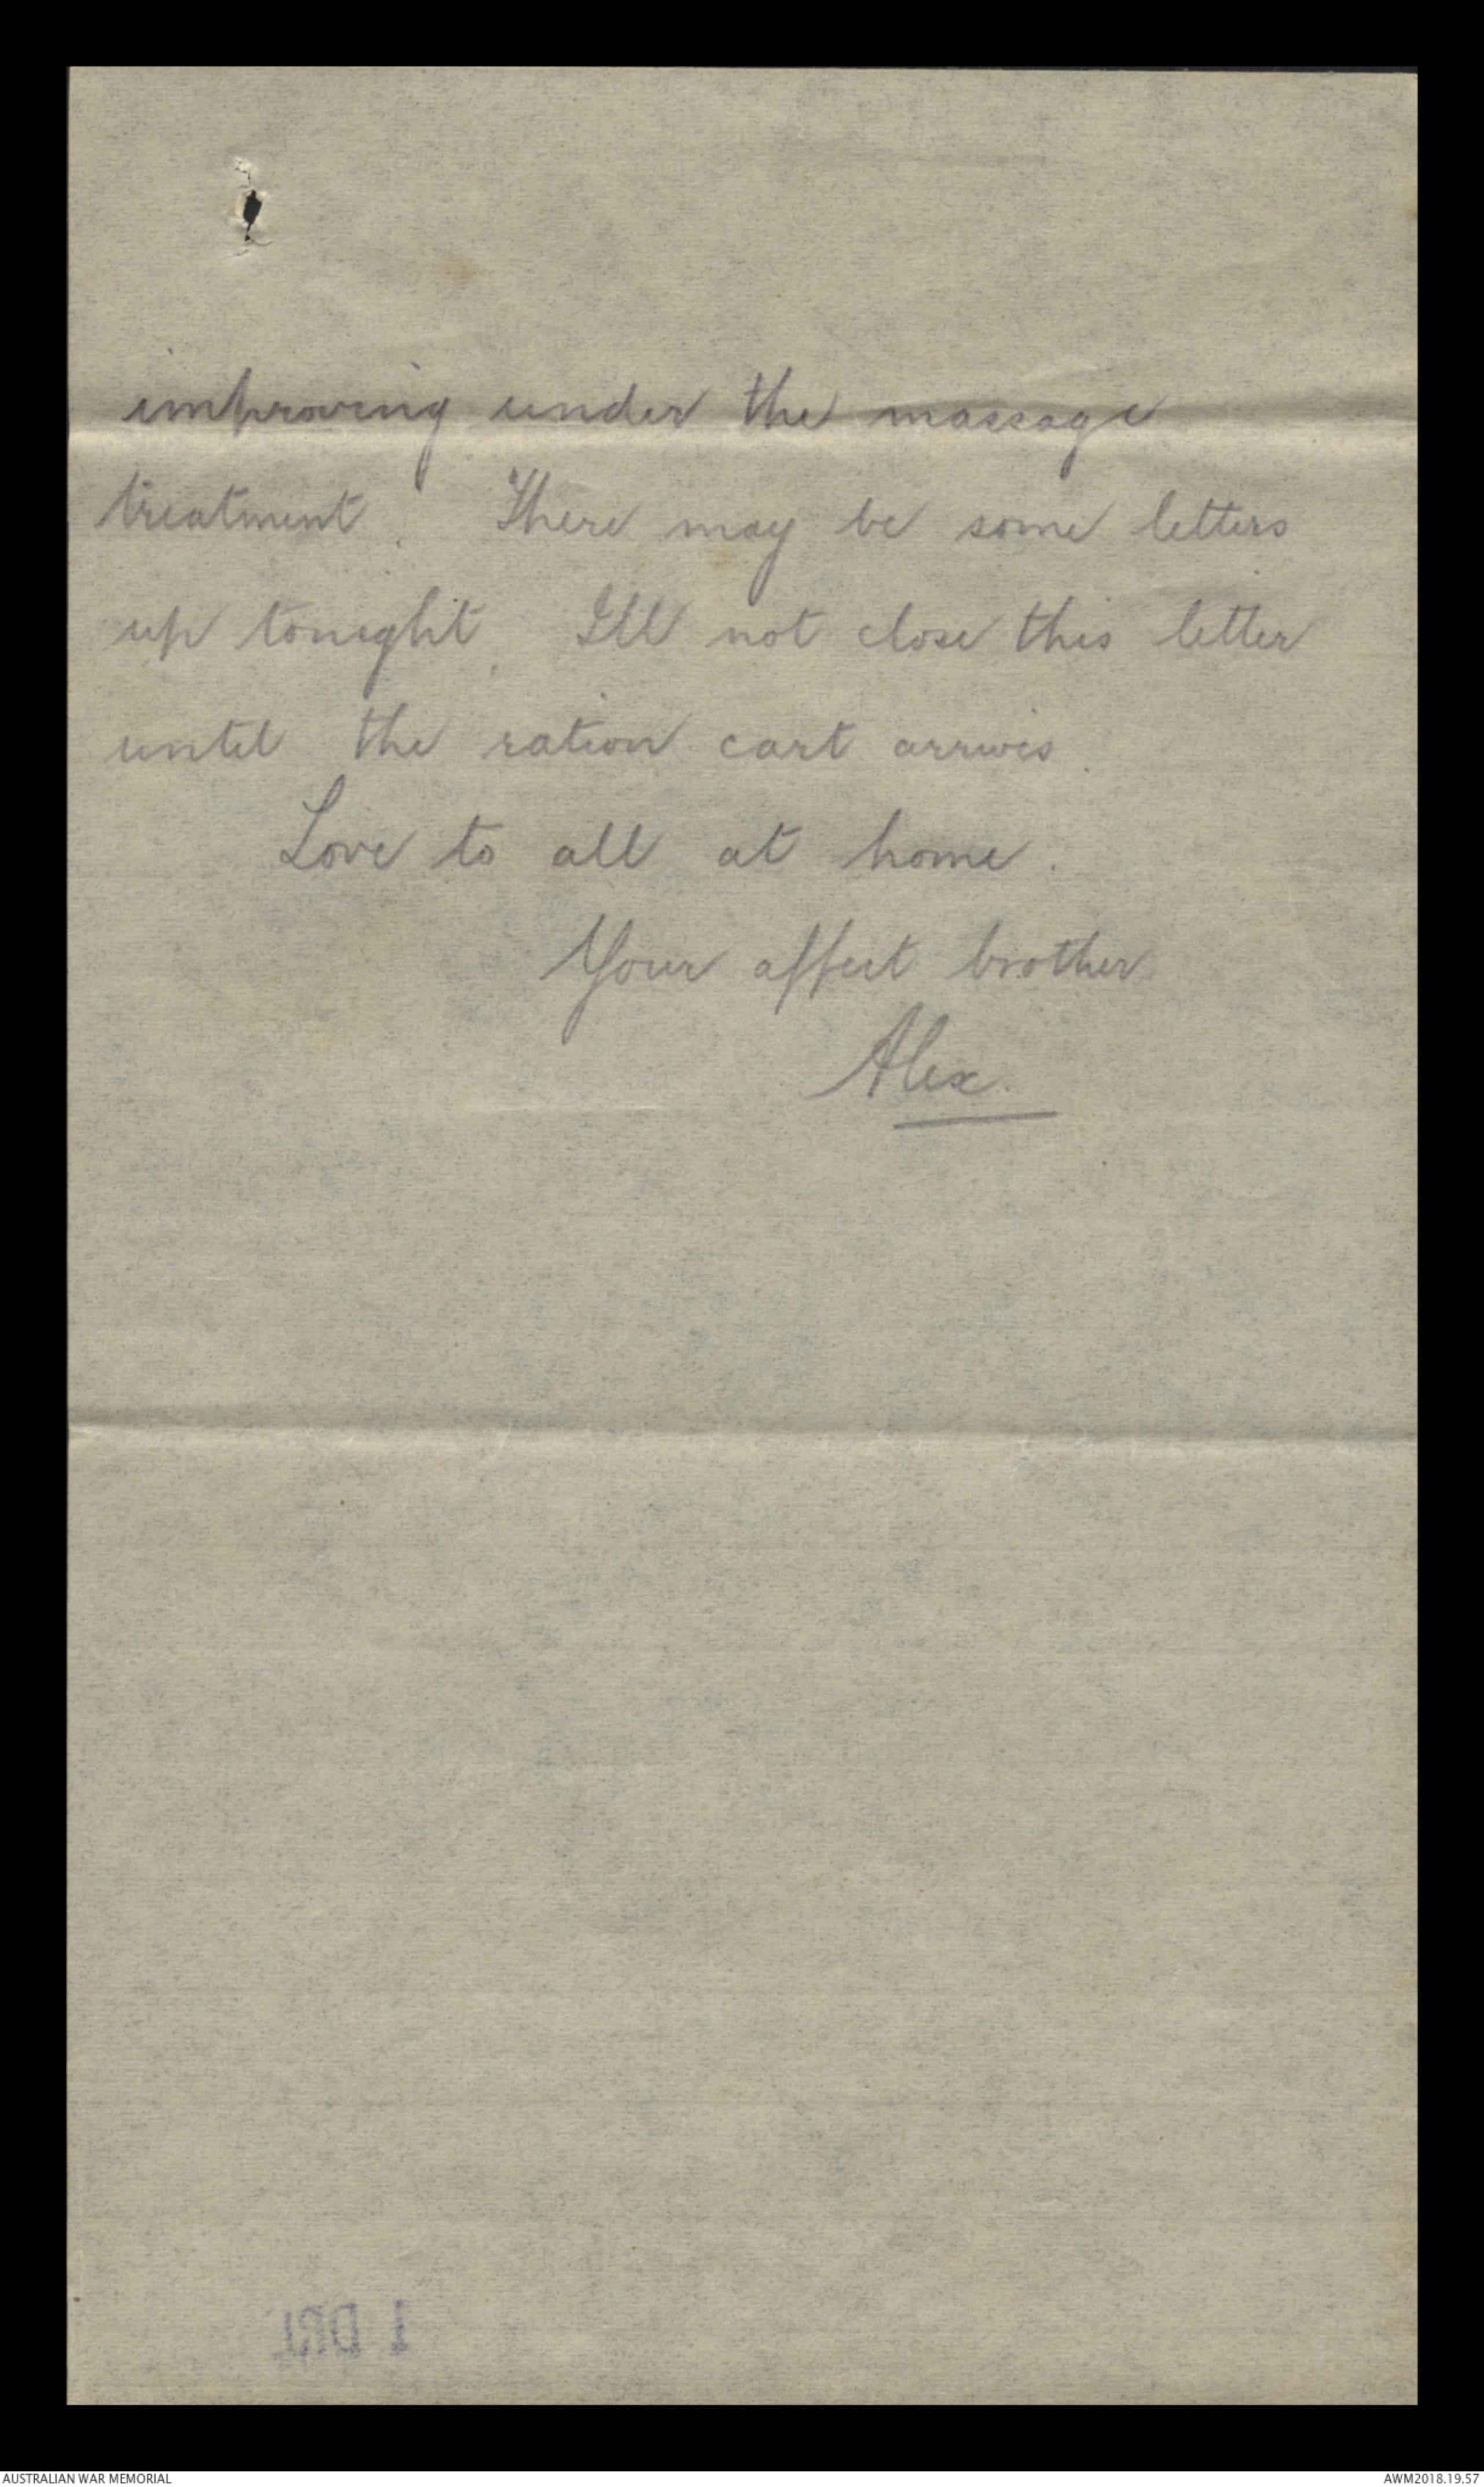 improving under the massage
treatment. There may be some letters
up tonight. I'll not close this letter
until the ration cart arrives.
Love to all at home.
Your affect brother
Alex.
1 DRL
AUSTRALIAN WAR MEMORIAL
AWM2018.19.57